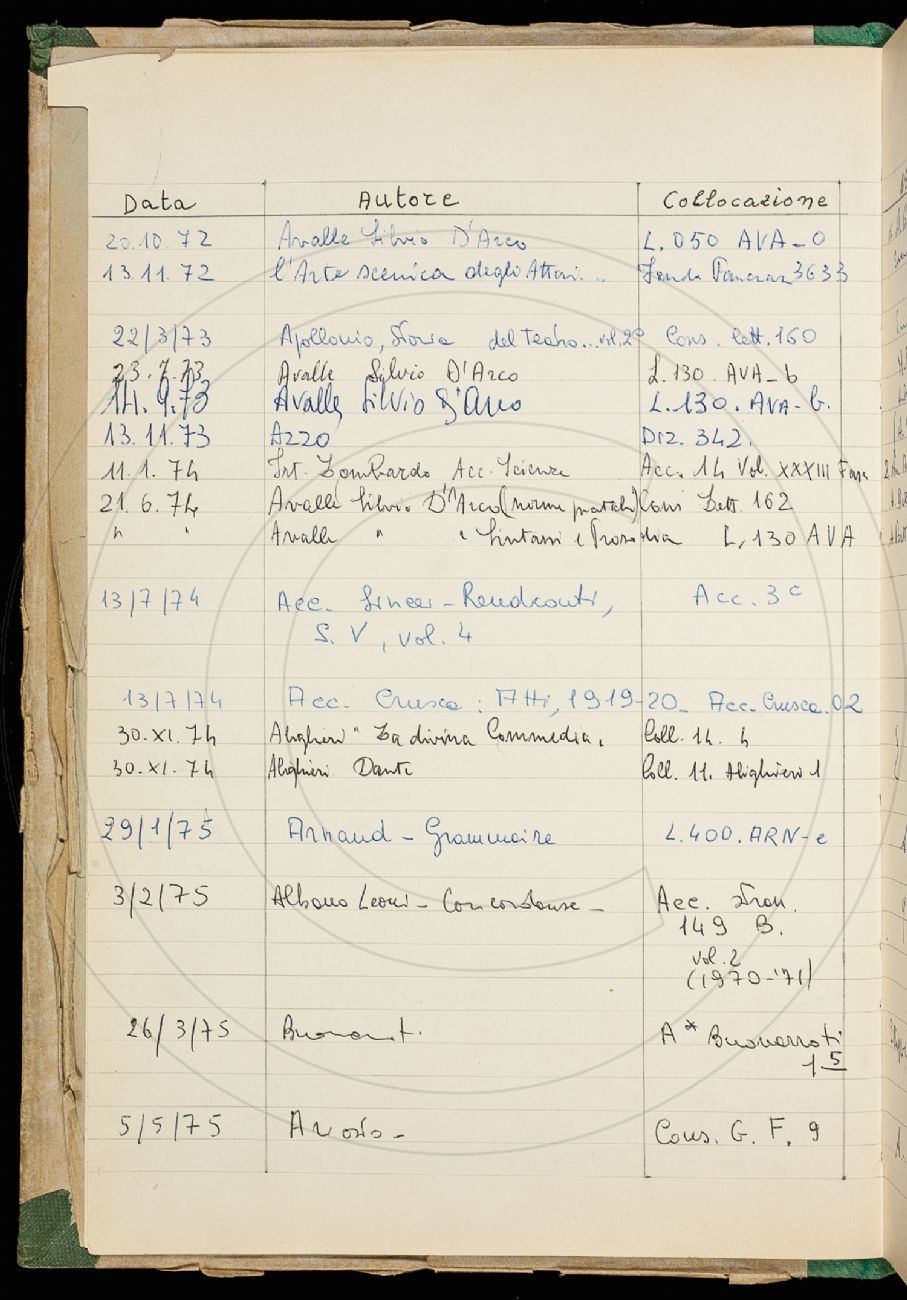 Data Autore Collocazione
20.10.72 Avalle Silvio D'Arco L.050 AVA-0
13.11.72 l'Arte scenica degli Attori... 3633
22/3/73 Apollonio, Storia del teatro...vol.2° Cons. lett. 160
23.7.73 Avalle Silvio D'Arco L.130. AVA-b
14.9.73 Avalle Silvio D'Arco L.130. AVA-b.
13.11.73 Azzo Diz. 342.
11.1.74 Ist. Lombardo Acc. Scienze Acc. 14 Vol. XXXIII
21.6.74 Avalle Silvio D'Arco (norme Cons Lett. 162
" " Avalle " " Sintassi e Prosodia L,130 AVA
13/7/74 Acc. Lincei - Rendiconti, Acc. 3 c
S. V, vol. 4
13/7/74 Acc. Crusca: Atti, 1919-20_ Acc. Crusca.02
30.XI.74 Alighieri "La divina Commedia. Coll. 14. 4
30.XI.74 Alighieri Dante Coll. 11. Alighieri 1
29/1/75 Arnaud - Grammaire L.400.ARN-e
3/2/75 Albano Leoni - Concordanze - Acc. Stran.
149 B.
vol. 2
(1970-'71)
26/3/75 Buonarroti. A* Buonarroti
1 5
5/5/75 Cons. G. F. 9